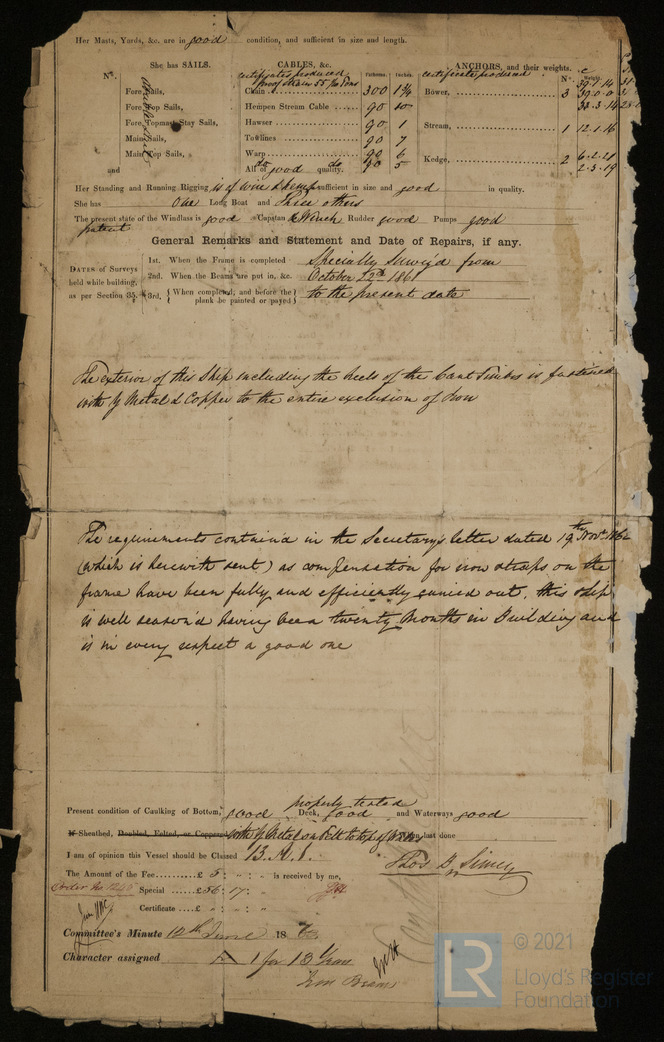 Her Masts, Yards, &c. are in good condition, and sufficient in size and length.
She has SAILS. CABLES, &c. Fathoms. Inches. ANCHORS, and their weights.
N°. certificates produced certificate produced N°. Weight.
proof strain 55 Tons
Fore Sails, Chain 300 1 3/4 Bower, 3 39.1.14
Fore Top Sails, Hempen Stream Cable 90 10 39.0.0
Fore Topmast Stay Sails, Hawser 90 1 Stream, 1 12.1.16
Main Sails, Towlines 90 7
Main Top Sails, Warp 90 6 Kedge, 2 6.2.21
and All of good quality. 90 5 2.3.19
Her Standing and Running Rigging is of wire & hemp sufficient in size and good in quality.
She has One Long Boat and Three others
The present state of the Windlass is good Capstan & Winch Rudder good Pumps good
patent
General Remarks and Statement and Date of Repairs, if any.
DATES of Surveys held while building, as per Section 35.
1st. When the Frame is completed Specially Survey'd from
2nd. When the Beams are put in, &c. October 22nd 1861
3rd. { When completed, and before the plank be painted or payed } to the present date
The exterior of this Ship including the heels of the Cant Timbers is fastened
with Y Metal & Copper to the entire exclusion of Iron
The requirements contain'd in the Secretary's letter dated 19th Novr. 1862
(which is herewith sent) as compensation for iron straps on the
frame have been fully and efficiently carried out. this ship
is well season'd having been twenty months in Building and
is in every respect a good one
properly tested
Present condition of Caulking of Bottom, good Deck, good and Waterways good
If Sheathed, Doubled, Felted, or Coppered with Y Metal on Felt to top of Wales When last done
I am of opinion this Vessel should be Classed 13. A. 1.
The Amount of the Fee £ 5 : " : " is received by me,
Thos B. Simey
Order No 1240 Special £ 56 : 17 : "
Certificate £ " : " : "
Committee's Minute 12th June 1863
Character assigned A 1 for 13 Years
© 2021
LR
Lloyd's Register
Foundation